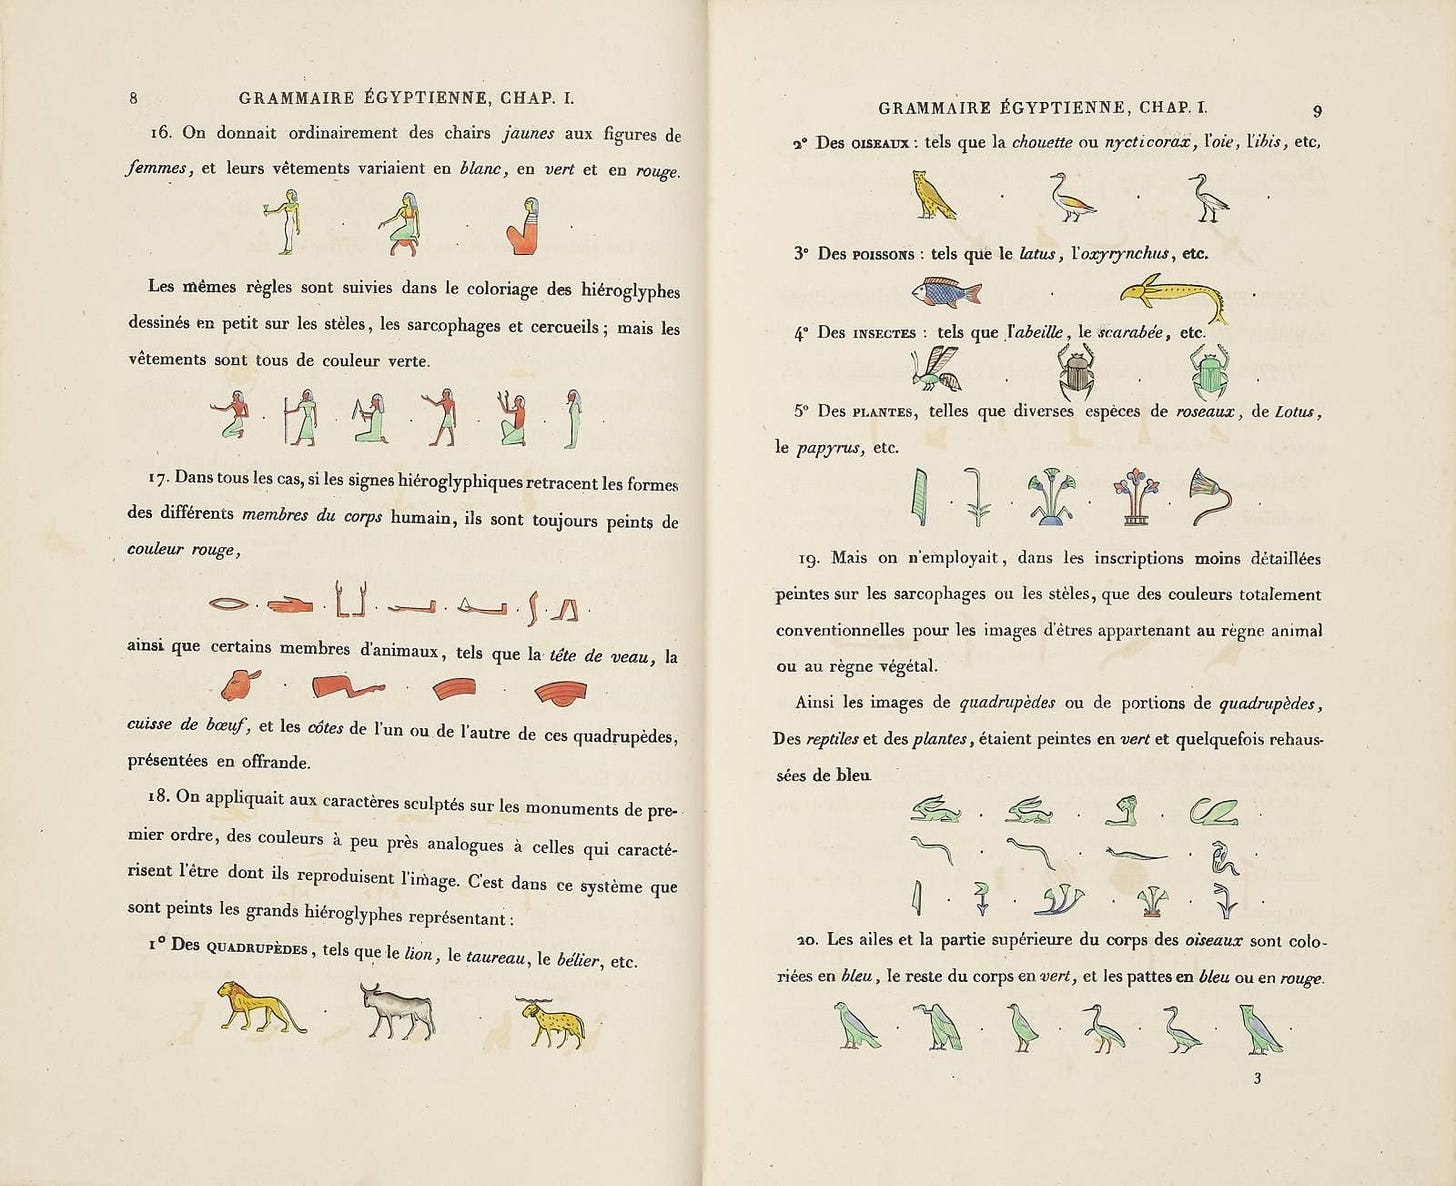 8 GRAMMAIRE ÉGYPTIENNE, CHAP. I.
16. On donnait ordinairement des chairs jaunes aux figures de
femmes, et leurs vêtements variaient en blanc, en vert et en rouge.
Les mêmes règles sont suivies dans le coloriage des hiéroglyphes
dessinés en petit sur les stèles, les sarcophages et cercueils ; mais les
vêtements sont tous de couleur verte.
17. Dans tous les cas, si les signes hiéroglyphiques retracent les formes
des différents membres du corps humain, ils sont toujours peints de
couleur rouge,
ainsi que certains membres d'animaux, tels que la tête de veau, la
cuisse de bœuf, et les côtes de l'un ou de l'autre de ces quadrupèdes,
présentées en offrande.
18. On appliquait aux caractères sculptés sur les monuments de pre-
mier ordre, des couleurs à peu près analogues à celles qui caracté-
risent l'être dont ils reproduisent l'image. C'est dans ce système que
sont peints les grands hiéroglyphes représentant :
1° Des QUADRUPÈDES, tels que le lion, le taureau, le bélier, etc.
GRAMMAIRE ÉGYPTIENNE, CHAP. I. 9
2° Des OISEAUX : tels que la chouette ou nycticorax, l'oie, l'ibis, etc,
3° Des POISSONS : tels que le latus, l'oxyrynchus, etc.
4° Des INSECTES : tels que l'abeille, le scarabée, etc.
5° Des PLANTES, telles que diverses espèces de roseaux, de Lotus,
le papyrus, etc.
19. Mais on n'employait, dans les inscriptions moins détaillées
peintes sur les sarcophages ou les stèles, que des couleurs totalement
conventionnelles pour les images d'êtres appartenant au règne animal
ou au règne végétal.
Ainsi les images de quadrupèdes ou de portions de quadrupèdes,
Des reptiles et des plantes, étaient peintes en vert et quelquefois rehaus-
sées de bleu
20. Les ailes et la partie supérieure du corps des oiseaux sont colo-
riées en bleu, le reste du corps en vert, et les pattes en bleu ou en rouge.
3